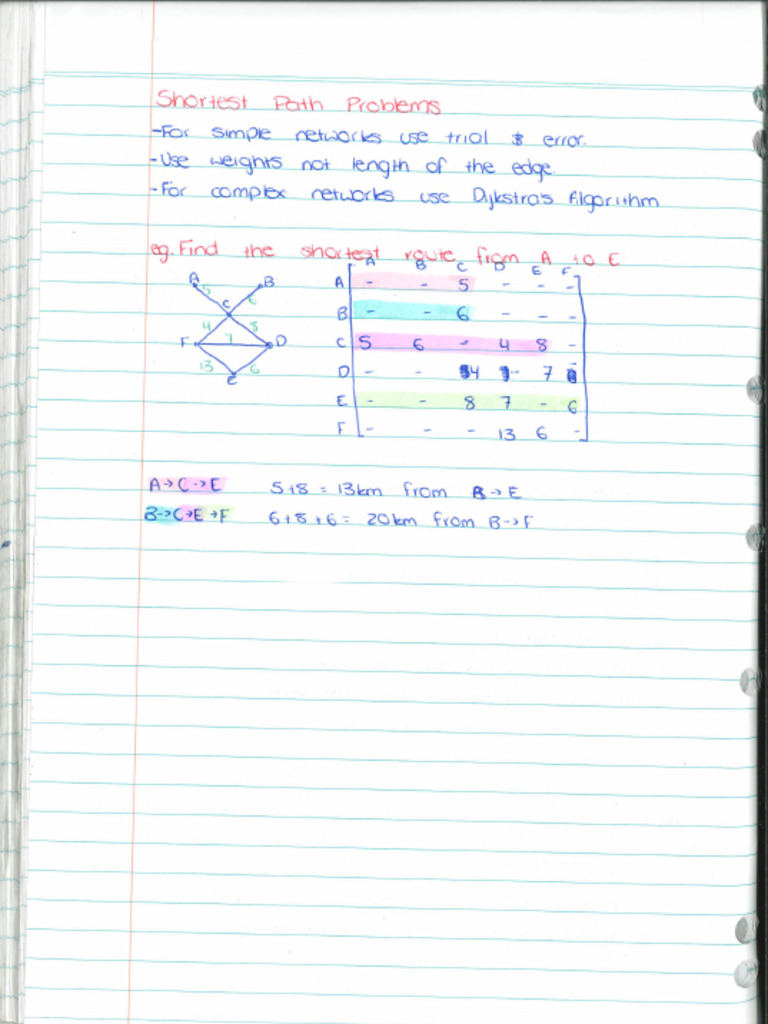 Shortest Path Problems
-For simple networks use trial & error.
-Use weights not length of the edge.
-For complex networks use Dijkstra's Algorithm
eg. Find the shortest route from A to E
A B C D E F
A - - 5 - - -
B - - 6 - - -
C 5 6 - 4 8 -
D - - 4 - 7
E - - 8 7 - 6
F - - - 13 6 -
A B
5 6
C
4 8
F 7 D
13 6
E
A→C→E 5+8 = 13km from B→E
B→C→E→F 6+8+6= 20km from B→F